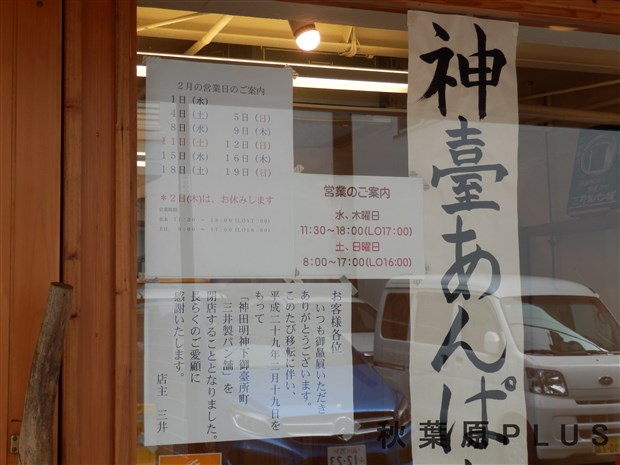 2月の営業日のご案内
1日(水)
4日(土) 5日(日)
8日(水) 9日(木)
11日(土) 12日(日)
15日(水) 16日(木)
18日(土) 19日(日)
＊2日(木)は、お休みします
営業のご案内
水、木曜日
11:30～18:00(LO17:00)
土、日曜日
8:00～17:00(LO16:00)
お客様各位
いつも御贔屓いただき
ありがとうございます。
このたび移転に伴い、
平成二十九年二月十九日を
もって
「神田明神下御臺所町
三井製パン舗」を
閉店することとなりました。
長らくのご愛顧に
感謝いたします。
店主 三井
神臺あんぱ
秋葉原PLUS